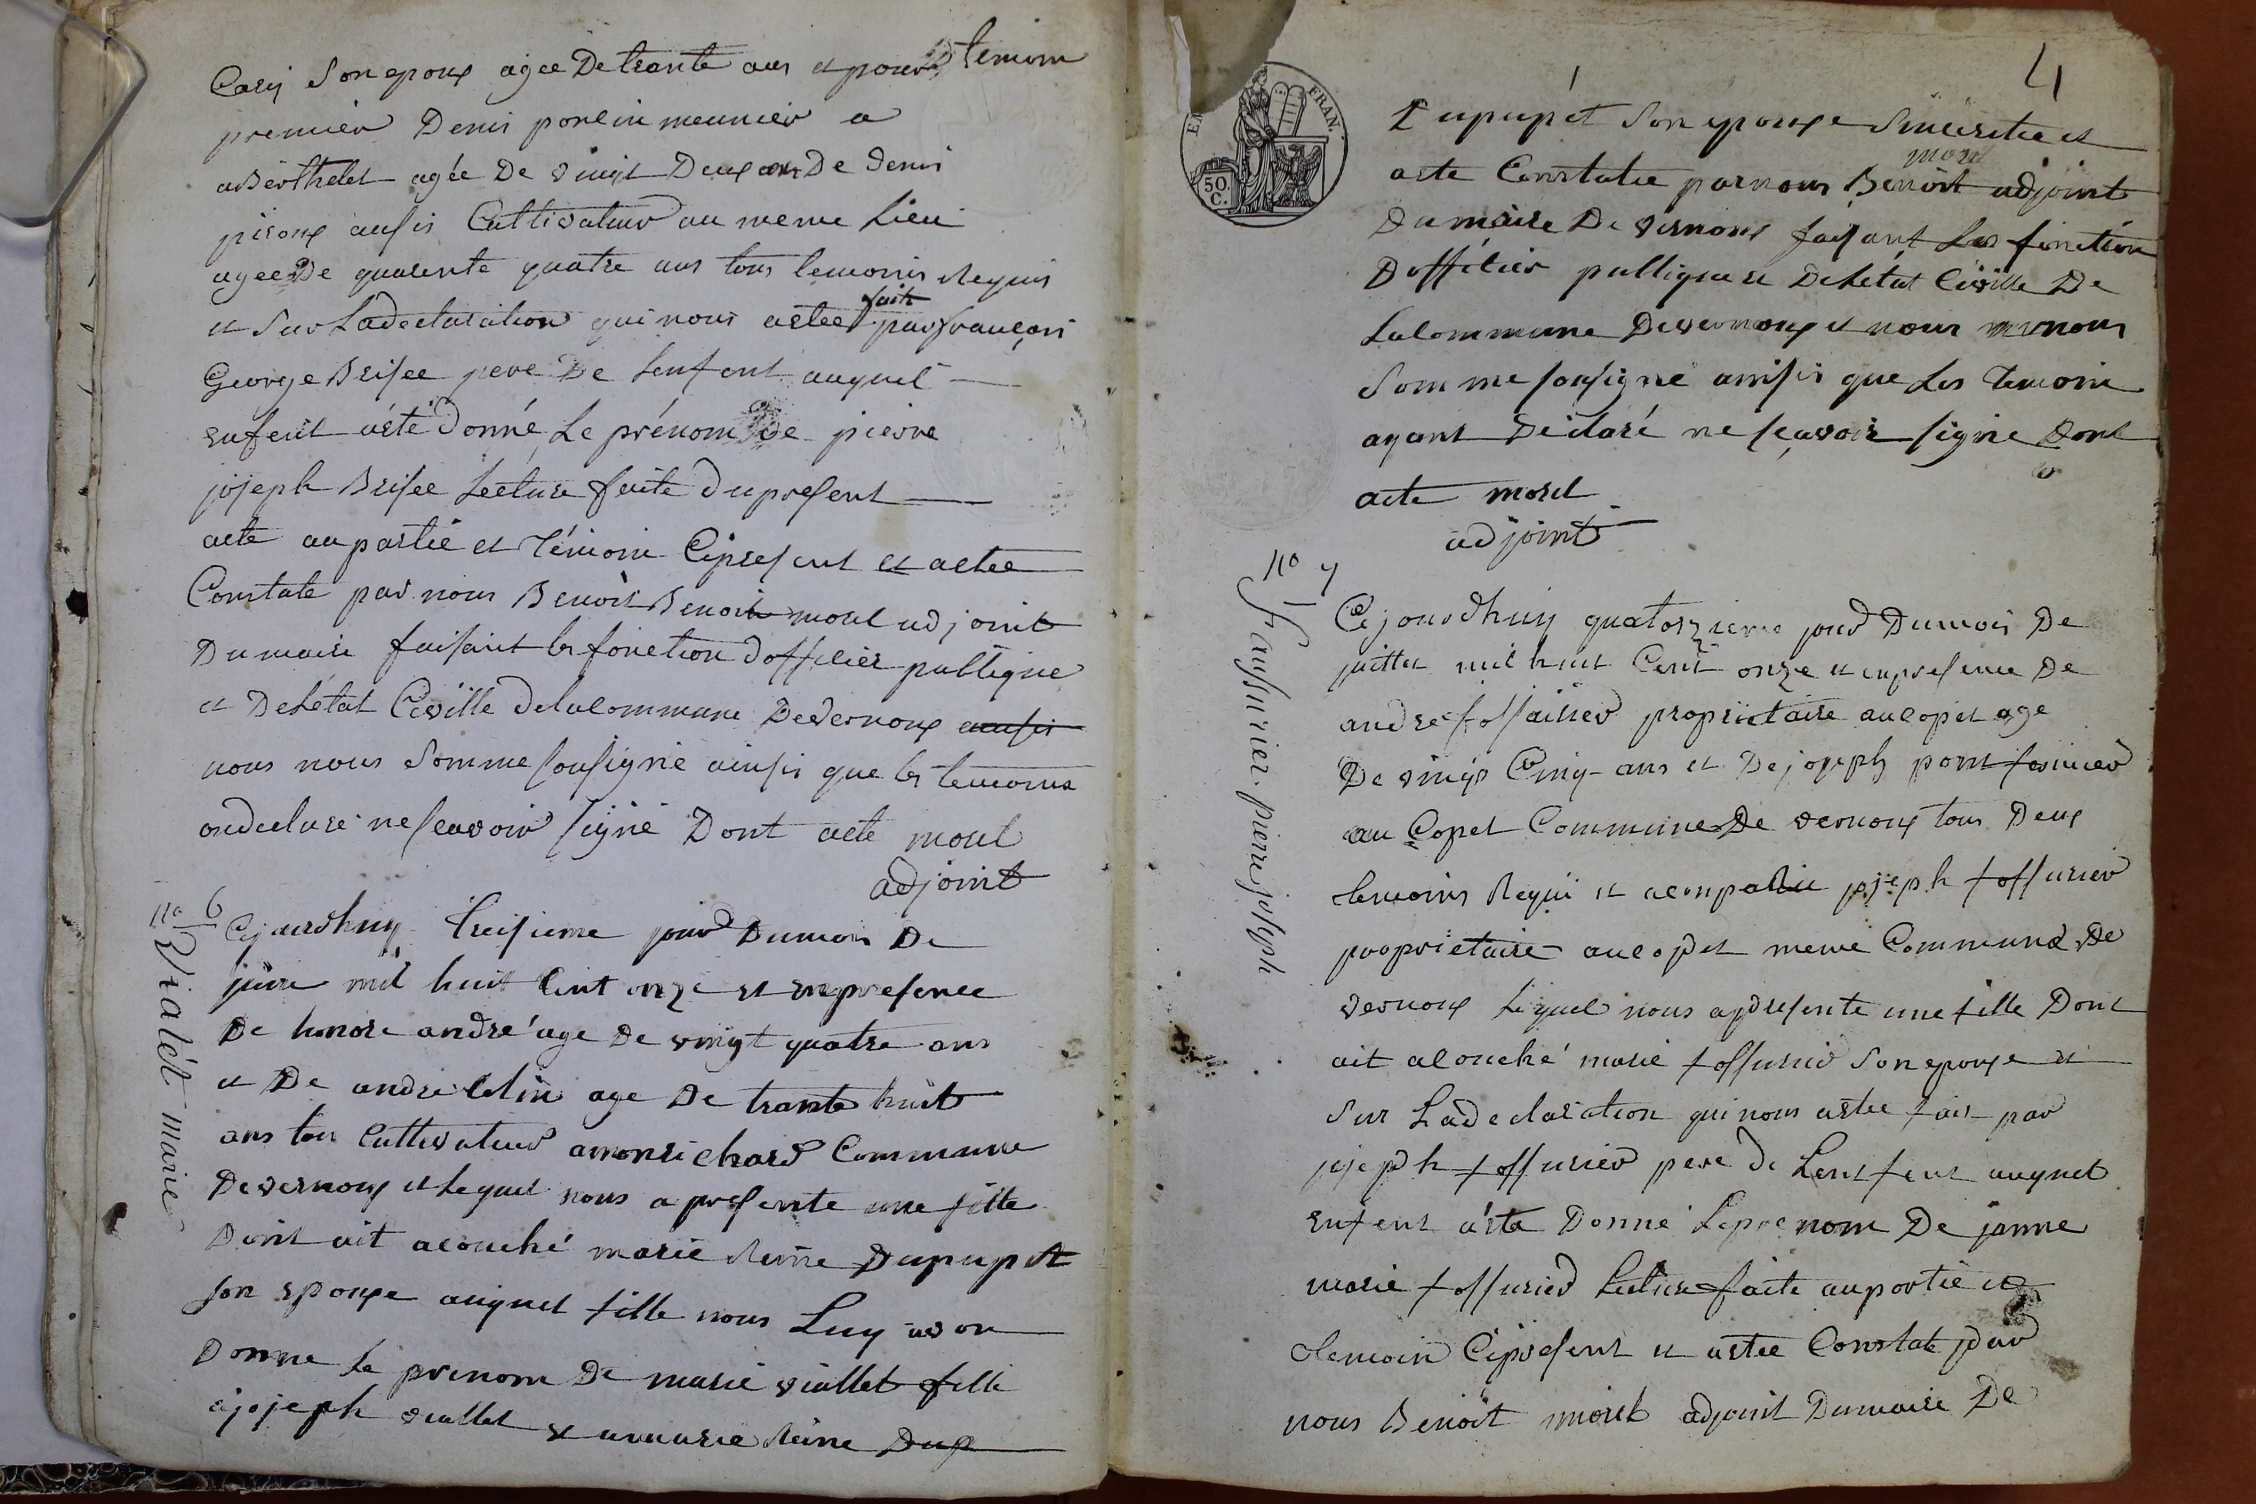 Cary Son epoux agee De trante ans et pour temoin
premier Denis ponlin meunier a
aBerthelet agée De vingt Deux ans De Denis
piroux ausis Cultivateur au meme Lieu
agee De quarente quatre ans tous temoins Requis
et Sur Ladeclaration qui nous aetee fait par françois
George Brisee pere De Lenfent auquel
enfent aété donné Le prénom De pierre
jojeph Brisee Lecture faite Dupresent
acte au partie et Témoin Cipresent et aetee
Constate par nous Benoit Benoit morel adjoint
Dumaire faisant les fonction dofficier publique
et DeLétat Civille delacommune Devernoux ausis
nous nous Somme sousigné ainsis que les temoins
ondeclare ne scavoir signé Dont acte morel
adjoint
no 6
Vialét marie
Cejourdhuy Treisieme jour Dumois De
juin mil huit Cent onze et enpresence
De honore andré age De vingt quatre ans
et De andre Colin age De trante huit
ans tou Cultivateur amonrichard Commune
Devernoux et Lequel nous a presente une fille
Dont ait acouché marie Reine Dupupet
son epouse auquel fille nous Luy avon
Donne Le prenom De marie viallet fille
ajojeph viallet et amarie Reine Dup
4
EM FRAN.
50 C.
Dupupét Son epouse Sinceritee et
acte Constatee parnous Benoit morel adjoint
Dumaire De vernoux faisant Les fonction
Dofficier publique et DeLetat Civille De
Lacommune Devernoux et nous nous
Somme sousigné ainsis que Les temoin
ayant Déclaré ne scavoir signe Dont
acte morel
adjoint
no 7
faussurier pierre joseph
Cejourdhuy quatorzieme jour Dumois De
juillet mil huit Cent onze et enpresence De
andre fossurier proprietaire aucopet age
De vingt Cinq ans et De jojeph pont fesurier
au Copet Commune De vernoux tous Deux
temoins Requi et acompalie jojeph fossurier
proprietaire aucopet meme Commune De
vernoux Lequel nous apresente une fille Dont
ait acouché marie fossurier Son epouse et
Sur Ladeclaration qui nous aetee fait par
jojeph fossurier pere de Lenfent auquel
enfent aéte Donné Leprenom De janne
marie fossurier Lecture faite aupartie et
temoin Cipresent et aetee Constate par
nous Benoit morel adjoint Dumaire De